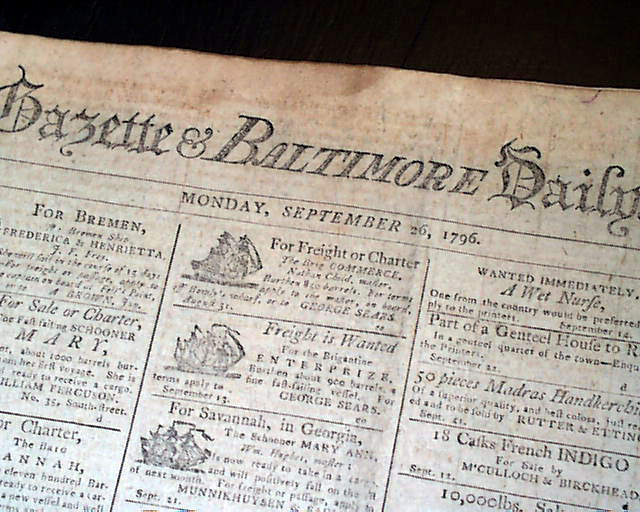 Gazette & BALTIMORE Daily
MONDAY, SEPTEMBER 26, 1796.
FOR BREMEN,
Bremen Ship
FREDERICA & HENRIETTA.
in the course of 15 days
freight or
on board
BROWN,
For Sale or Charter,
Fast failing SCHOONER
MARY,
about 1000 barrels bur-
her first voyage. She is
ready to receive a cargo.
WILLIAM FERGUSON.
No. 35, South-street.
d
or Charter,
The BRIG
ANNAH,
eleven hundred Bar-
ready to receive a car-
a new vessel and well
For Freight or Charter
The Brig COMMERCE,
master.
Burthen 850 barrels. For terms
apply to the master, on board,
wharf, or to GEORGE SEARS.
Freight is Wanted
For the Brigantine
ENTERPRIZE,
Burthen about 900 barrels, a
fine fast-failing vessel. For
terms apply to GEORGE SEARS.
September 13. eo
For Savannah, in Georgia,
The Schooner MARY ANN,
master;
Is now ready to take in a
and will positively fail on the
of next month. For freight or passage, apply to
MUNNIKHUYSEN &
Sept. 21.
WANTED IMMEDIATELY,
A Wet Nurse,
One from the country would be preferred.
to the printers. September
Part of a Genteel House to
In a genteel quarter of the town—Enq
the Printers.
September 22.
50 pieces Madras Handkerchi
Of a superior quality, and best colors, just re
ed and to be sold by RUTTER & ETTIN
Sept.
18 Casks French INDIGO
For Sale by
Sept. 12. M'CULLOCH & BIRCKHEAD
10,000lbs.